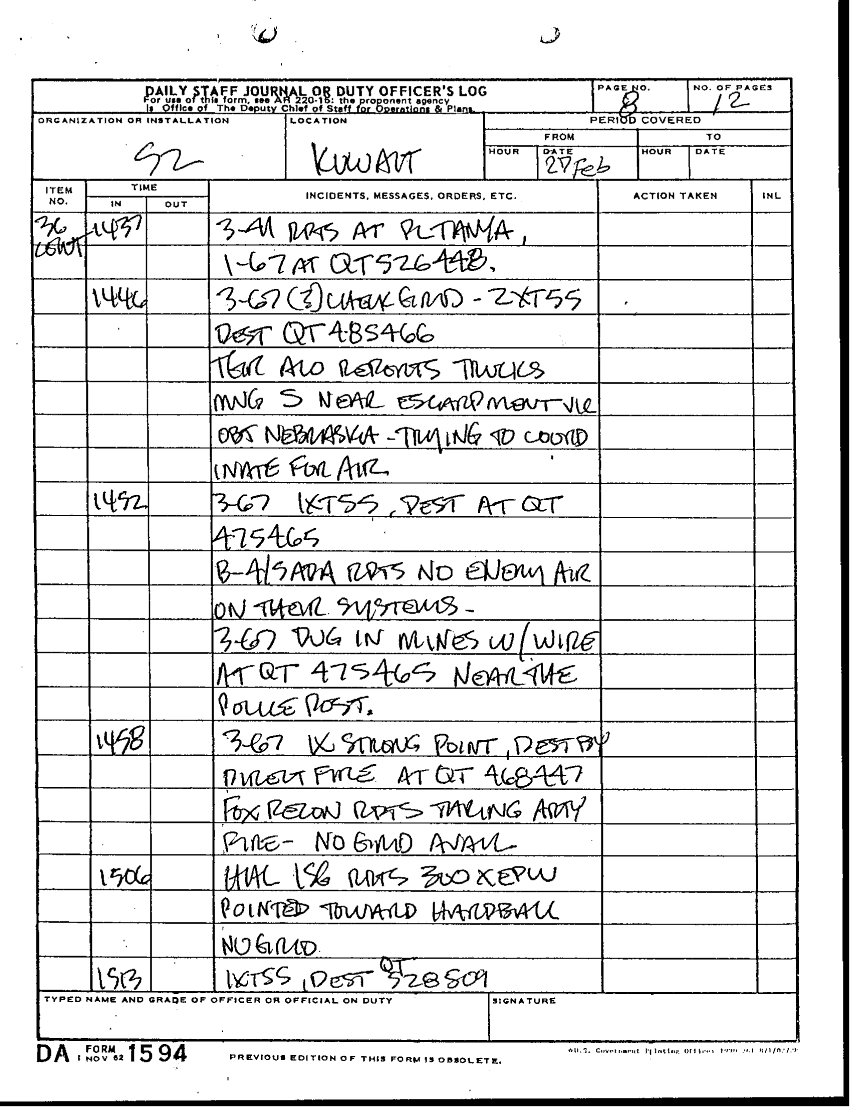 DAILY STAFF JOURNAL OR DUTY OFFICER'S LOG
For use of this form, see AR 220-15; the proponent agency
is Office of The Deputy Chief of Staff for Operations & Plans.
PAGE NO.
8
NO. OF PAGES
12
ORGANIZATION OR INSTALLATION
S2
LOCATION
KUWAIT
PERIOD COVERED
FROM
TO
HOUR
DATE
27 Feb
HOUR
DATE
ITEM NO.
TIME
IN
OUT
INCIDENTS, MESSAGES, ORDERS, ETC.
ACTION TAKEN
INL
36 1437 3-41 RPTS AT PL TANYA,
CONT 1-67 AT QT 526448.
1446 3-67 (3) CHECK GRID - 2XT55
DEST QT 485466
TGR ALO REPORTS TRUCKS
MNG S NEAR ESCARPMENT VIC
OBJ NEBRASKA - TRYING TO COORD
INATE FOR AIR.
1452 3-67 1XT55, DEST AT QT
475465
B-4/5 ADA RPTS NO ENEMY AIR
ON THEIR SYSTEMS -
3-67 DUG IN MINES W/WIRE
AT QT 475465 NEAR THE
POLICE POST.
1458 3-67 1X STRONG POINT, DEST BY
DIRECT FIRE AT QT 468447
FOX RECON RPTS TAKING ARTY
FIRE - NO GRID AVAIL
1506 HHC 1SG RPTS 300 X EPW
POINTED TOWARD HARDBALL
NO GRID.
1513 1XT55, DEST QT 528509
TYPED NAME AND GRADE OF OFFICER OR OFFICIAL ON DUTY
SIGNATURE
DA FORM 1594
1 NOV 62
PREVIOUS EDITION OF THIS FORM IS OBSOLETE.
U.S. Government Printing Office: 1990